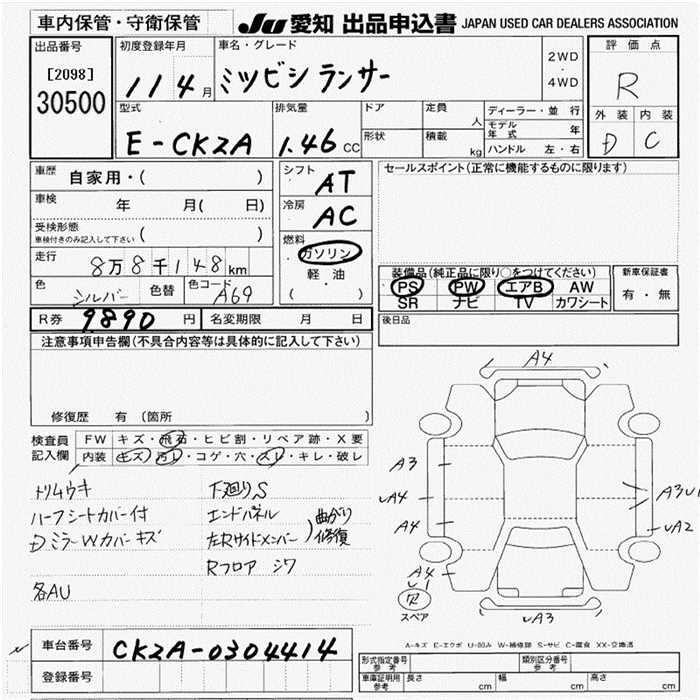 車内保管・守衛保管
JU 愛知 出品申込書 JAPAN USED CAR DEALERS ASSOCIATION
出品番号
[2098]
30500
初度登録年月
11 4月
車名・グレード
ミツビシ ランサー
2WD
・
4WD
評価点
R
外装 内装
D C
型式
E-CK2A
排気量
1.46 CC
ドア
定員 人
形状
積載 kg
ディーラー・並行
モデル年式 年
ハンドル 左・右
車歴 自家用・( )
車検 年 月( 日)
受検形態
車検付きのみ記入して下さい ( )
走行 8万8千148km
色 シルバー 色替 色コード A69
シフト AT
冷房 AC
燃料
ガソリン
軽・油
( )
セールスポイント(正常に機能するものに限ります)
装備品(純正品に限り○をつけてください)
PS PW エアB AW
SR ナビ TV カワシート
新車保証書
有・無
R券 9890円 名変期限 月 日
後日品
注意事項申告欄(不具合内容等は具体的に記入して下さい)
修復歴 有(箇所
検査員記入欄
FW キズ・飛石・ヒビ割・リペア跡・X要
内装 キズ・汚レ・コゲ・穴・スレ・キレ・破レ
トリムウキ
ハーフシートカバー付
DミラーWカバーキズ
各AU
下廻りS
エンドパネル
左Rサイドメンバー
曲がり修復
Rフロア シワ
A4
A3
UA4
A4
A3U1
UA2
A4
U1
スペア
UA3
A-キズ E-エクボ U-凹み W-補修跡 S-サビ C-腐食 XX-交換済
車台番号 CK2A-0304414
登録番号
型式指定番号 参考
類別区分番号 参考
車庫証明用 参考 長さ cm 幅 cm 高さ cm